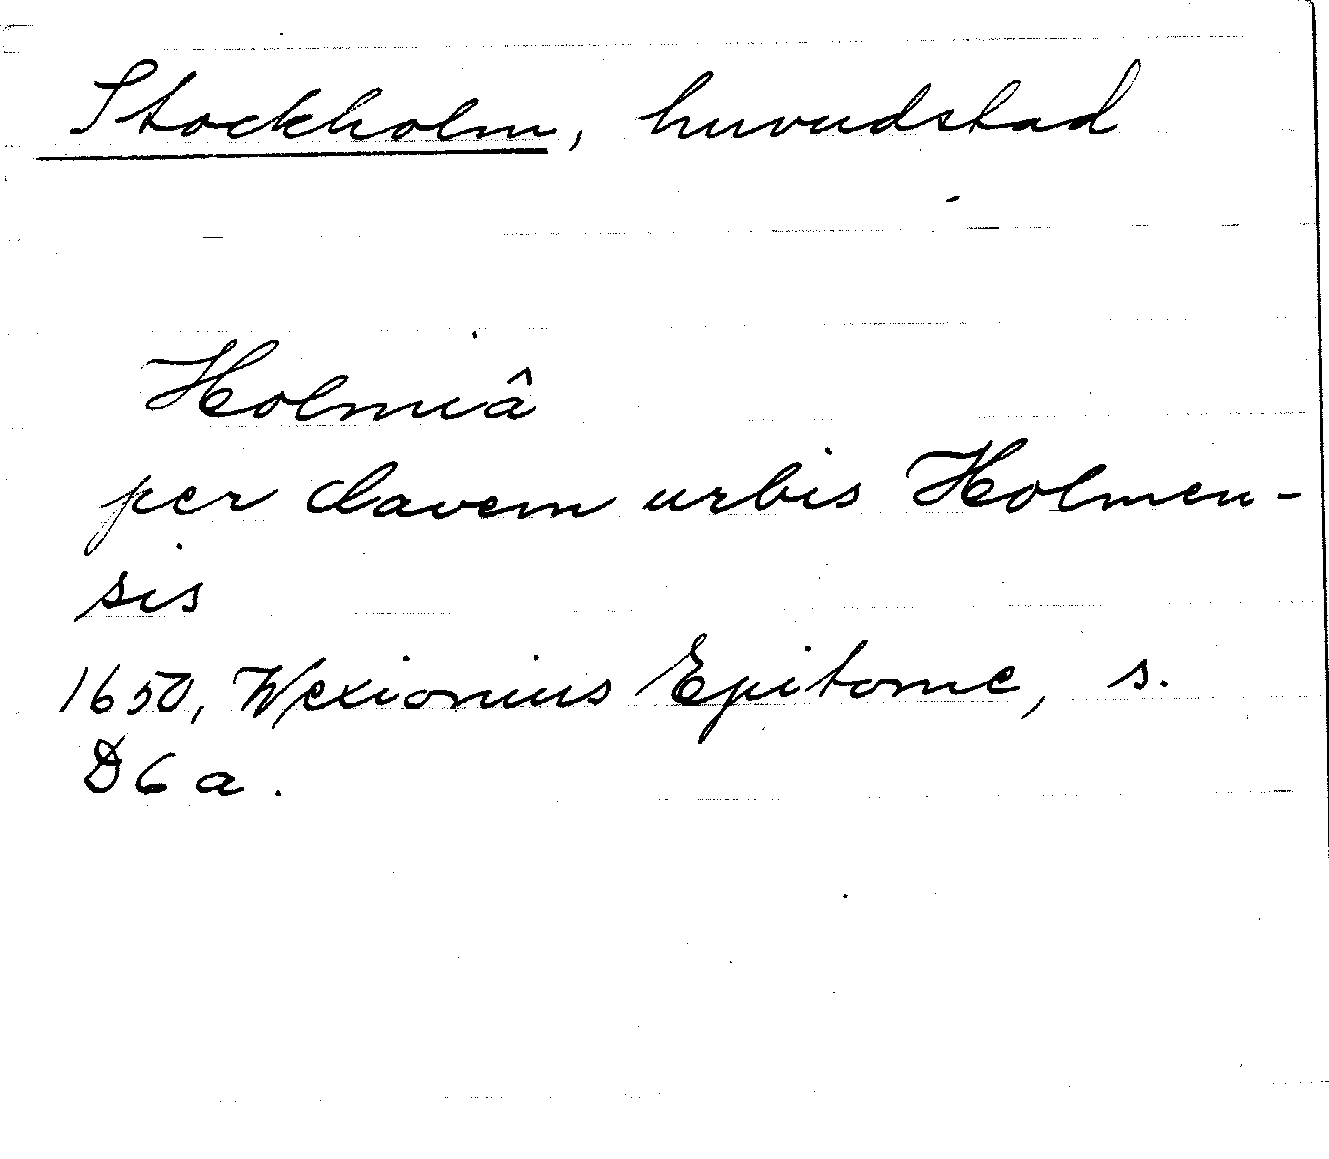 Stockholm, huvudstad
Holmiâ
per clavem urbis Holmen-
sis
1650, Wexionius Epitome, s.
D6a.